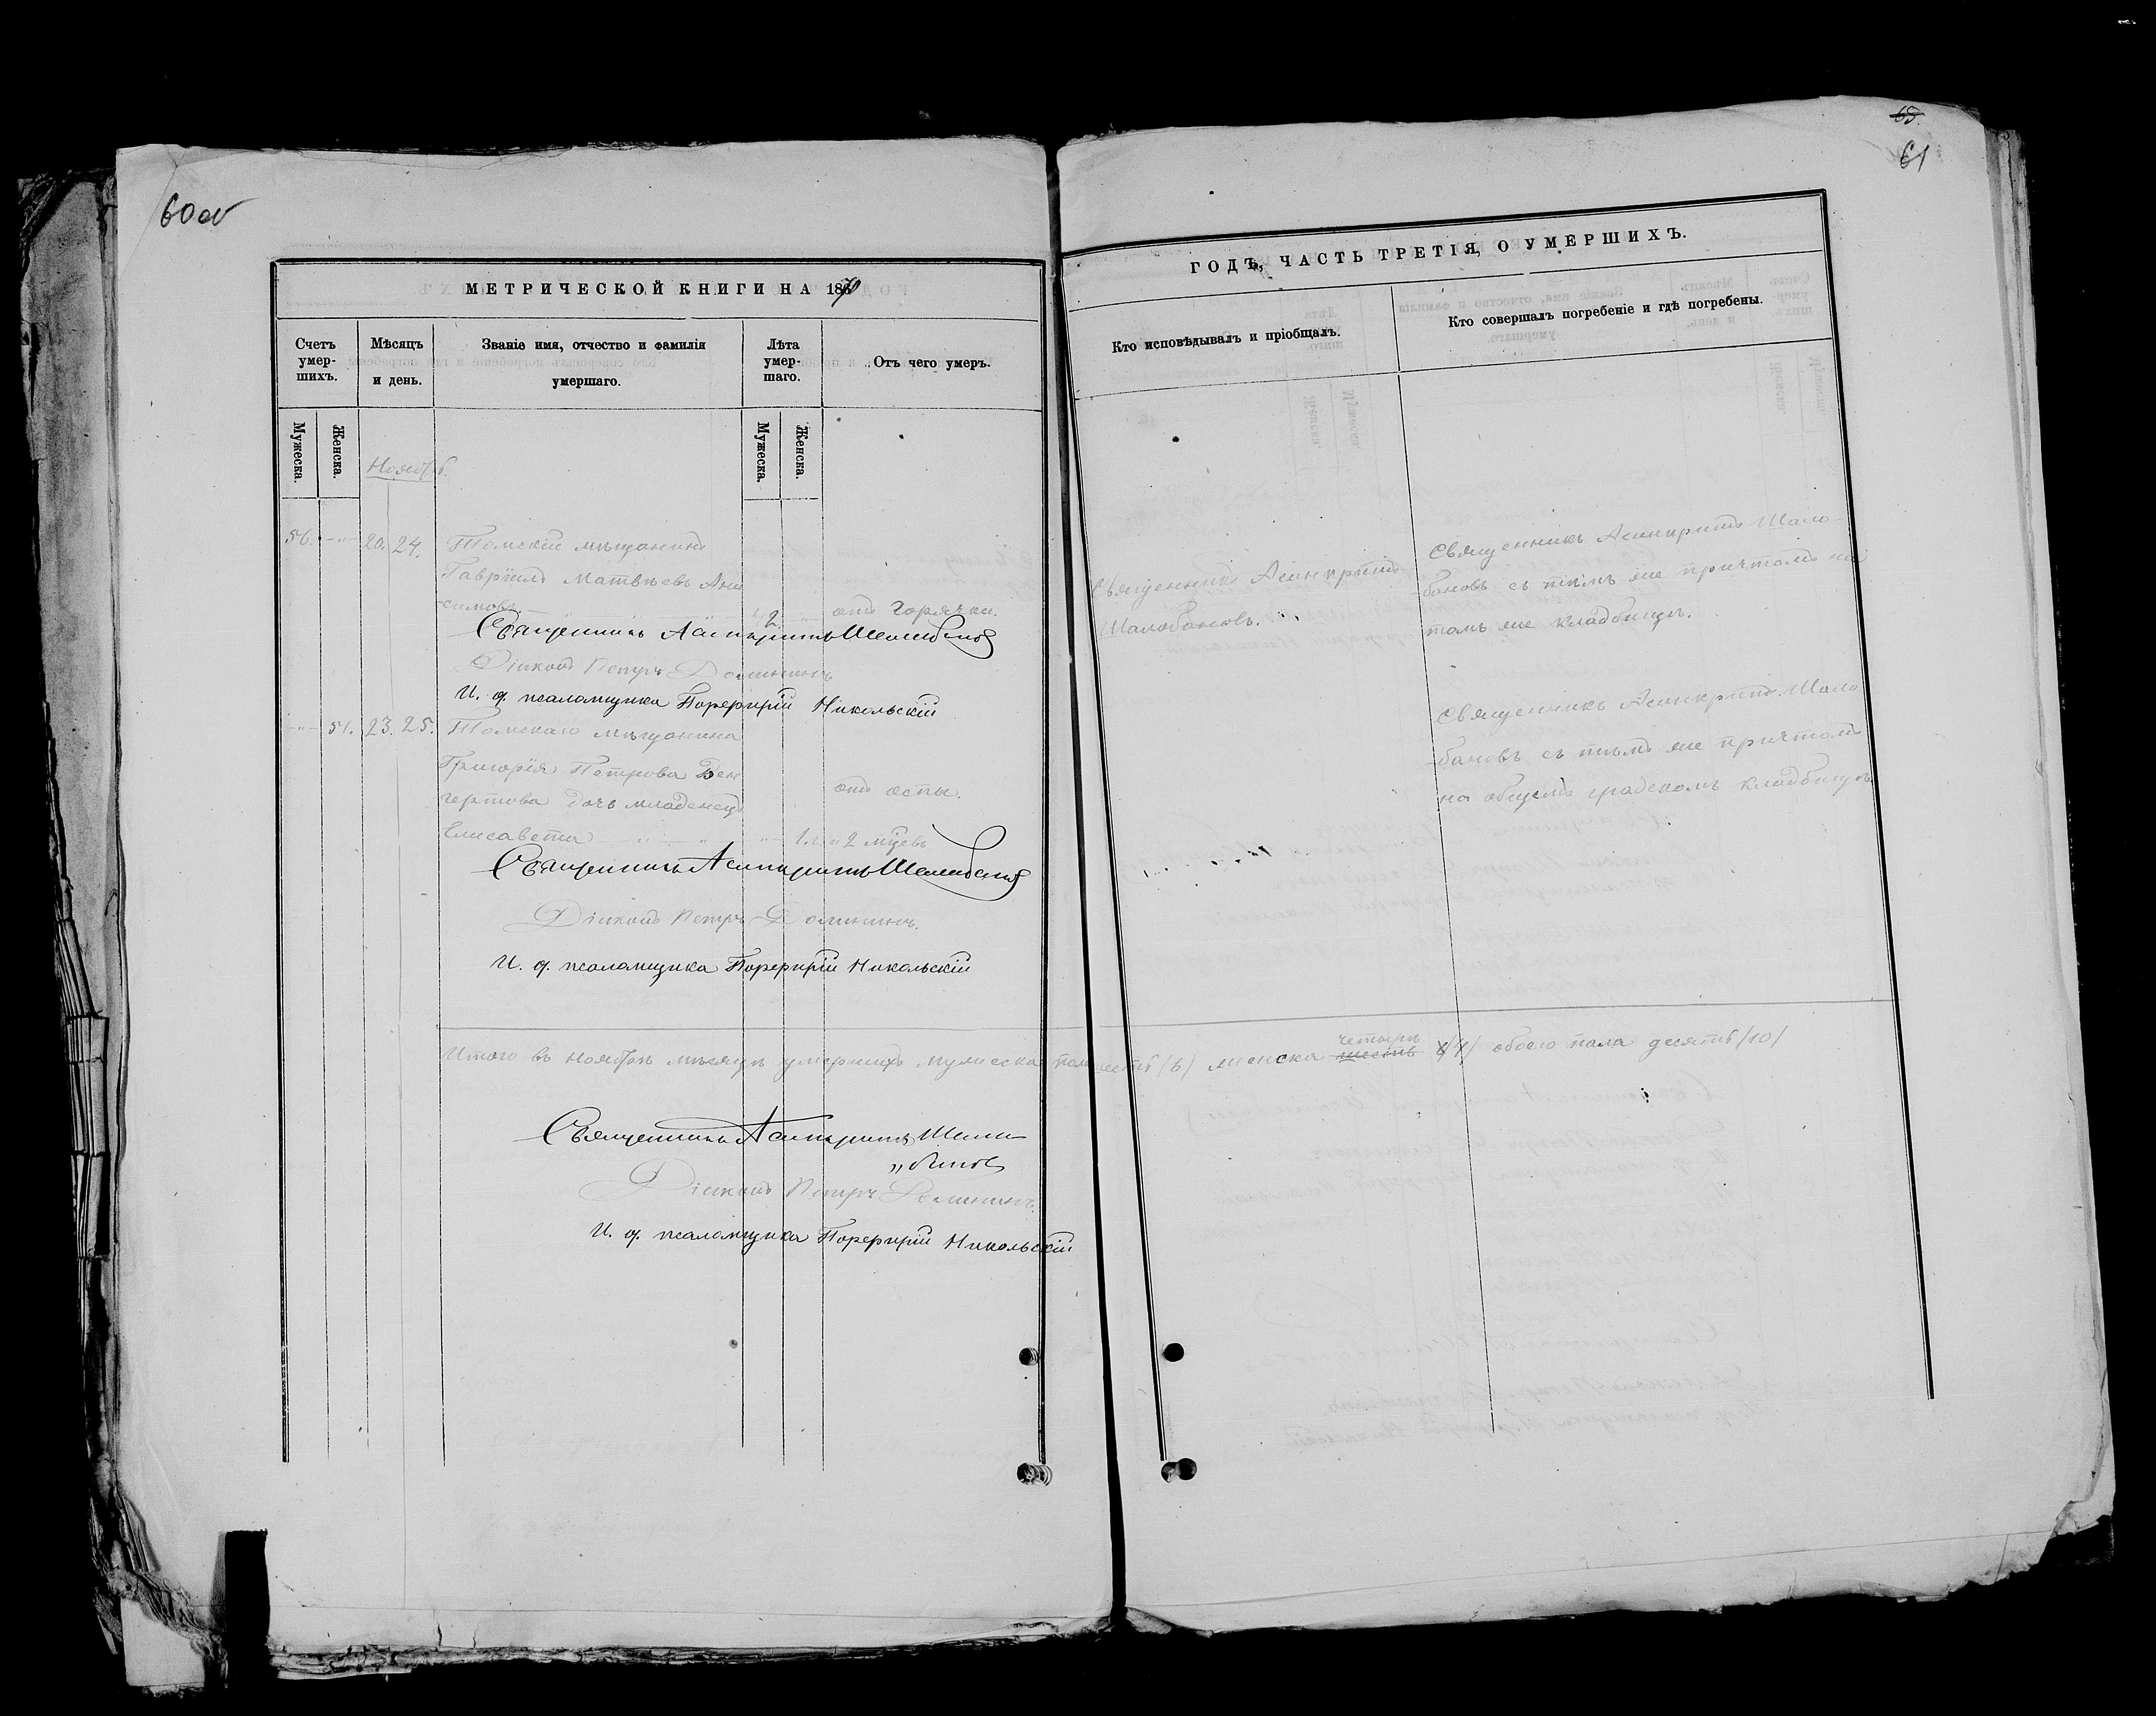 60 об
МЕТРИЧЕСКОЙ КНИГИ НА 1870
Счетъ умер-шихъ.
Мѣсяцъ и день.
Званіе имя, отчество и фамилія умершаго.
Лѣта умер-шаго.
Отъ чего умеръ.
Мужеска.
Женска.
Мужеска.
Женска.
Ноябрь.
56. 20. 24. Томскій мѣщанинъ
Гавріилъ Матвѣевъ Ани
-симовъ. 42 отъ горячки.
Священникъ Асинкритъ Шалобановъ
Діаконъ Петръ Домининъ
И. д. псаломщика Порфирій Никольскій
51. 23. 25. Томскаго мѣщанина
Григорія Петрова
дочь младенецъ отъ оспы.
Елисавета 1. и 2 мѣсяцевъ
Священникъ Асинкритъ Шалобановъ
Діаконъ Петръ Домининъ.
И. д. псаломщика Порфирій Никольскій
Итого въ ноябрѣ мѣсяцѣ умершихъ мужеска пола шесть /6/ женска шесть четыре /4/ обоего пола десять /10/
Священникъ Асинкритъ Шала
„бановъ
Діаконъ Петръ Домининъ.
И. д. псаломщика Порфирій Никольскій
65.
61
ГОДЪ, ЧАСТЬ ТРЕТІЯ, О УМЕРШИХЪ.
Кто исповѣдывалъ и пріобщалъ.
Кто совершалъ погребеніе и гдѣ погребены.
Священникъ Асинкритъ
Шалобановъ.
Священникъ Асинкритъ Шало-
-бановъ съ тѣмъ же причтомъ на
томъ же кладбищѣ.
Священникъ Асинкритъ Шало
-бановъ съ тѣмъ же причтомъ
на общемъ градскомъ кладбищѣ